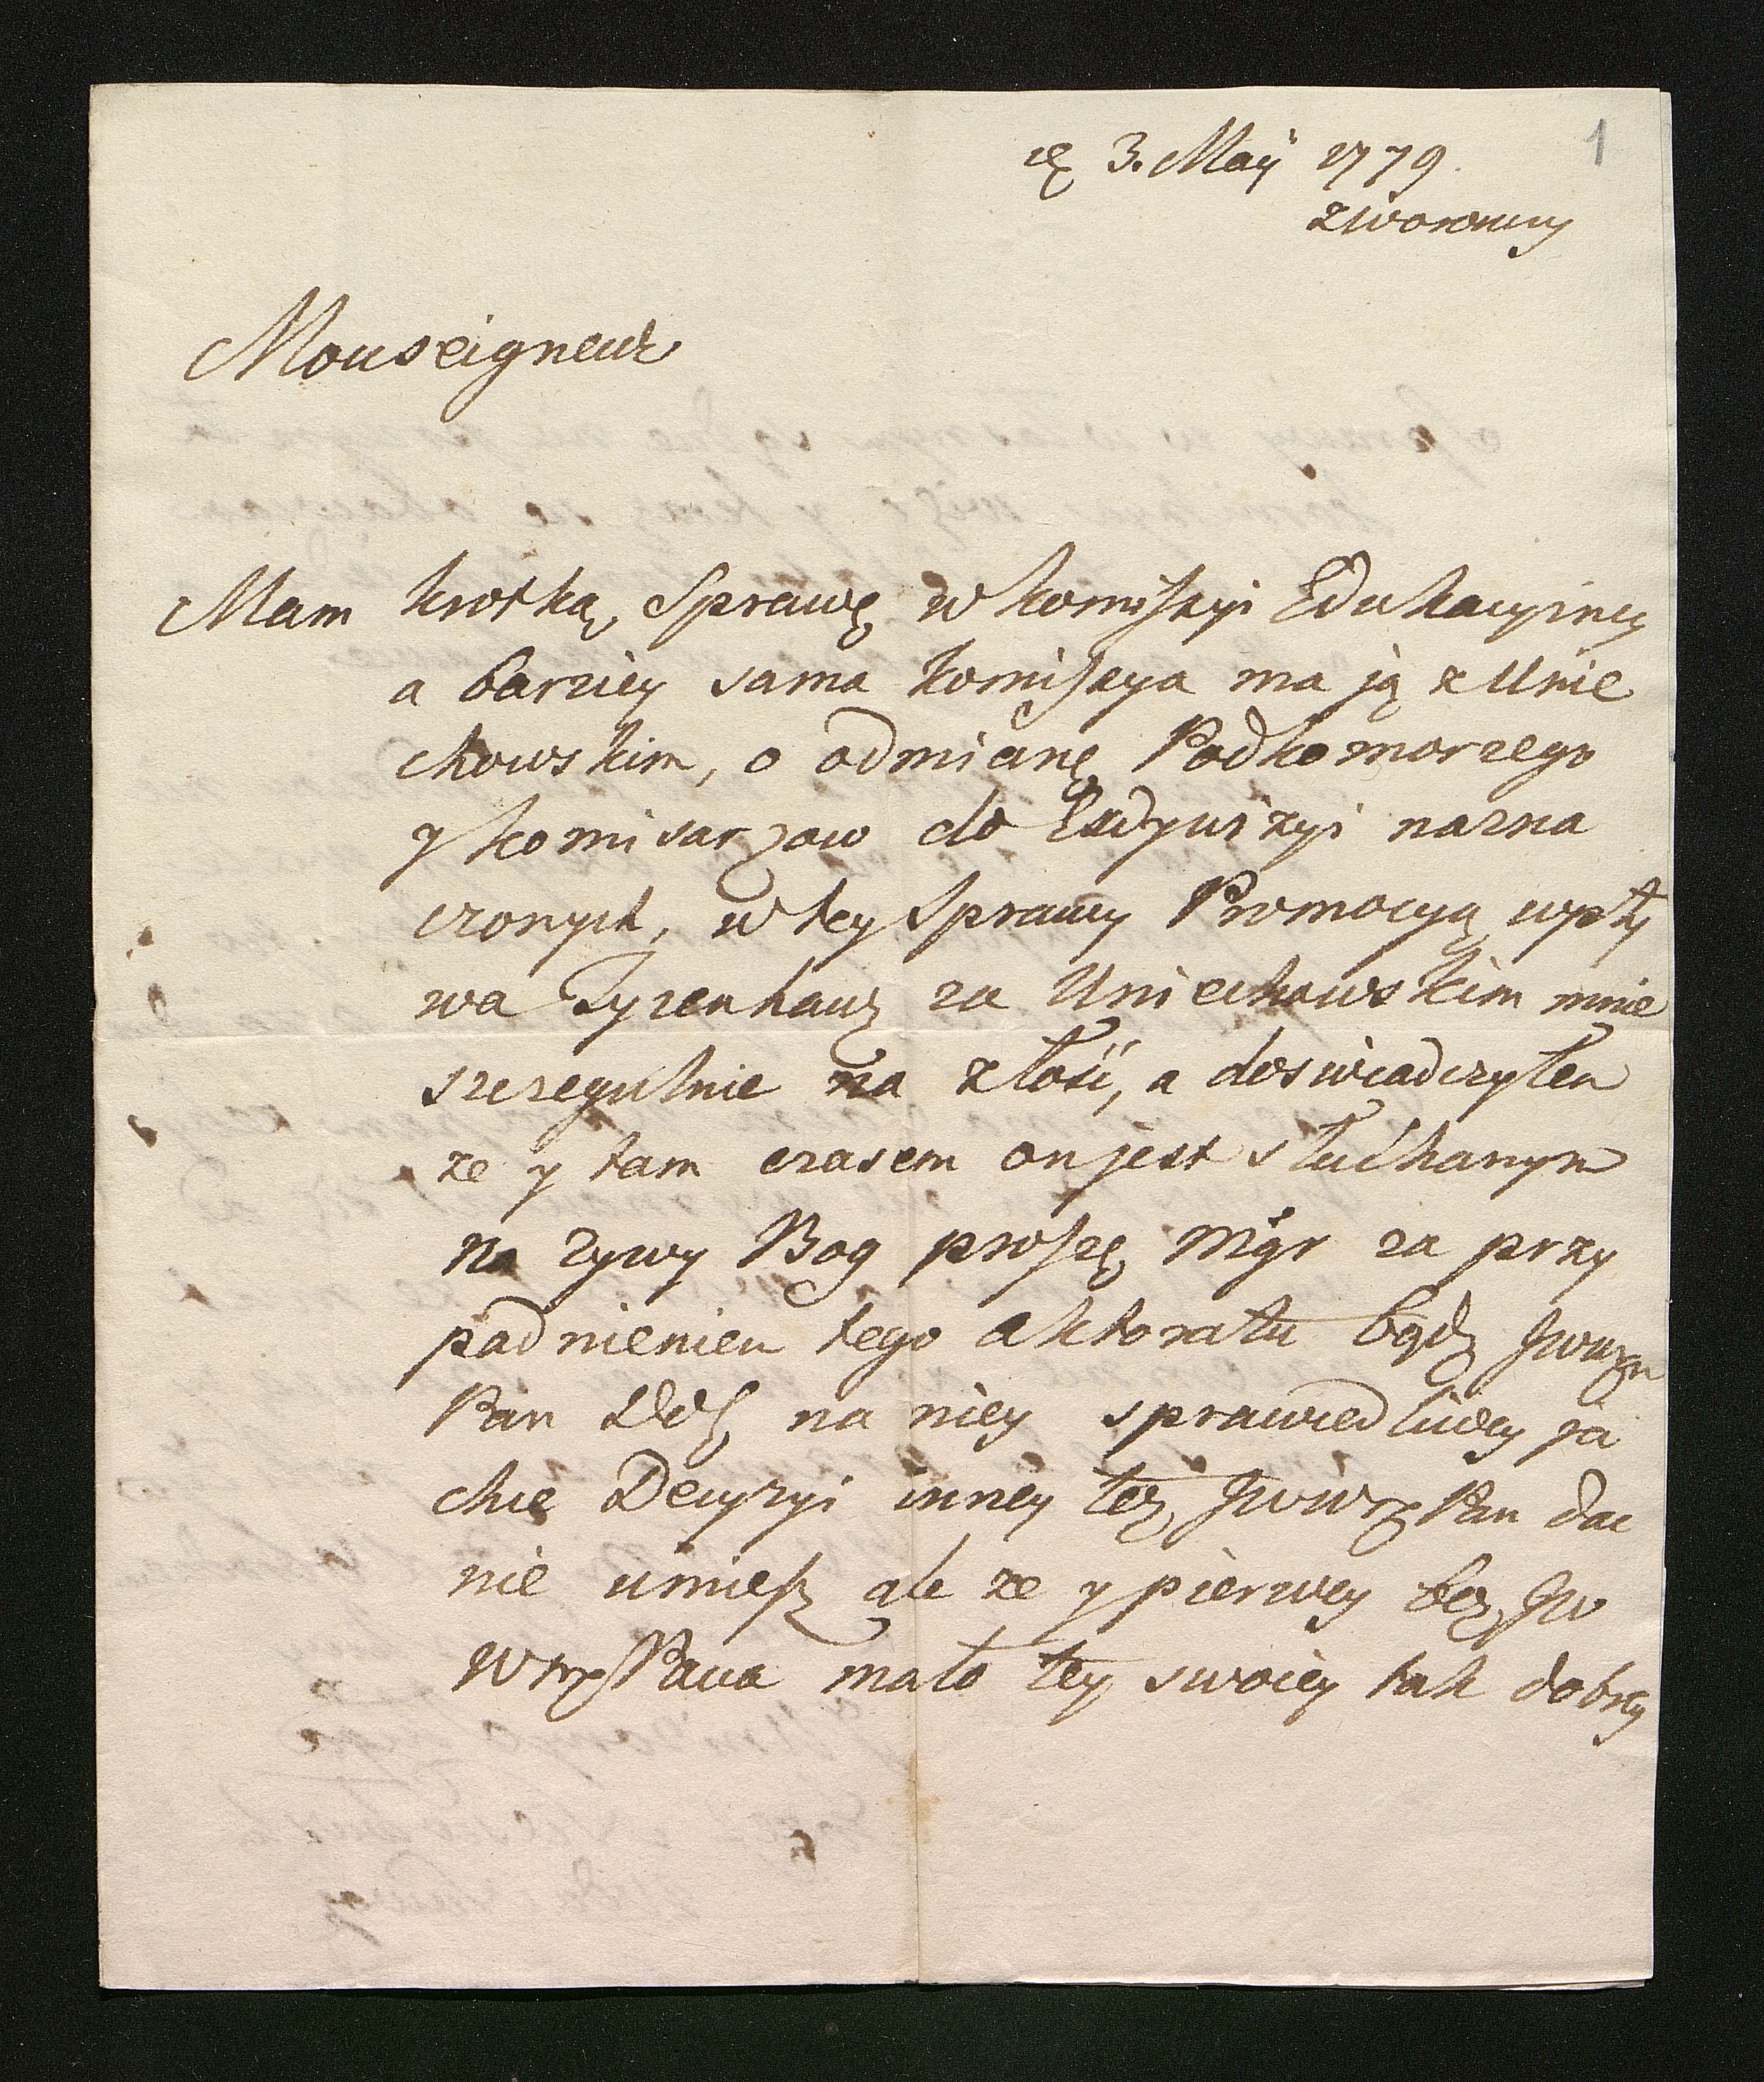 1
3. Maÿ 1779.
Monseigneur
Mam krotką Sprawę w komissyi Edukacyiney
a barziey sama komissya ma ją z Unie
chowskim, o odmianę Podkomorzego
y komisarzow do Exdywizyi nazna
czonych, w tey Sprawy Promocyą wpły
wa Tyzenhauz za Uniechowskim mnie
szczegulnie na złość, a doswiadczyłem
ze y tam czasem on jest słuchanym
na zywy Bog proszę Mgr za przy
padnieniem tego aktoratu bądz
Pan na niey sprawiedliwey ja
kie Decyzyi inney też Pan dac
nie umiesz ale ze y pierwey bez JW
Pana mało tey swoiey tak dobrey